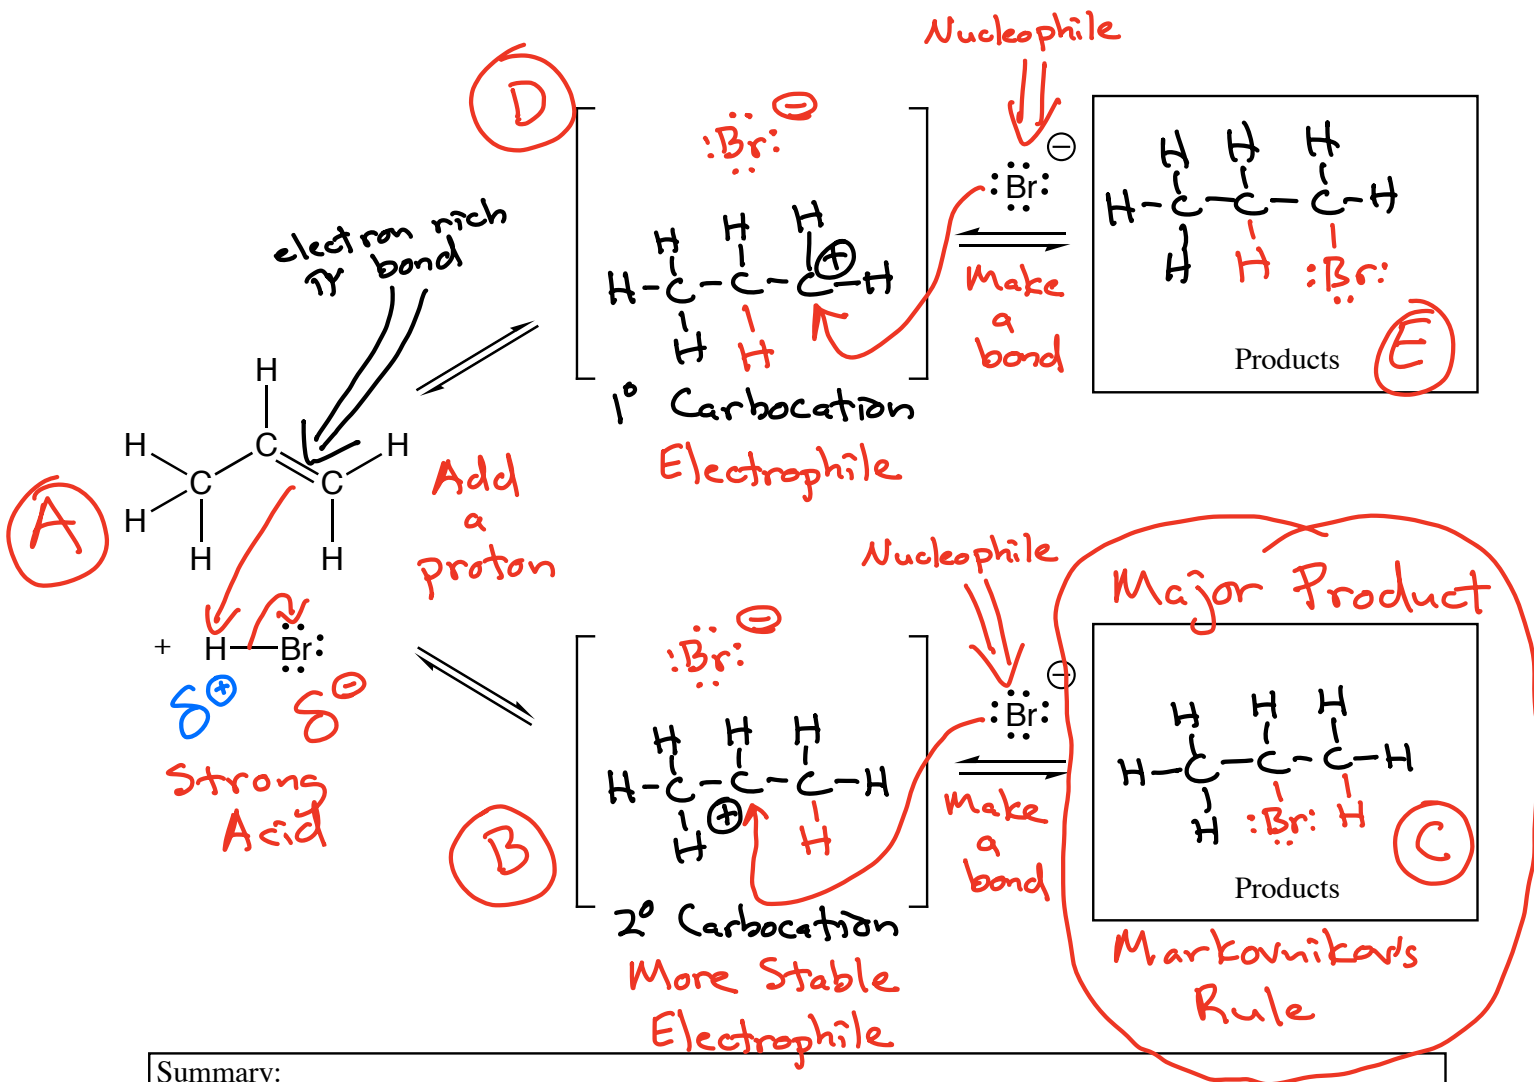 Nucleophile
D
:Br: ⊖
:Br: ⊖
H H H
H-C-C-C-H
H H :Br:
Products
E
electron rich
π bond
H H H
H-C-C-C⊕-H
H H
Make
a
bond
1° Carbocation
Electrophile
H
H C H
C C
H H H
A
Add
a
proton
+ H-Br:
δ⊕ δ⊖
Strong
Acid
Nucleophile
Major Product
:Br: ⊖
:Br: ⊖
H H H
H-C-C-C-H
H :Br: H
Products
C
B
H H H
H-C-C-C-H
H ⊕ H
Make
a
bond
2° Carbocation
More Stable
Electrophile
Markovnikov's
Rule
Summary: